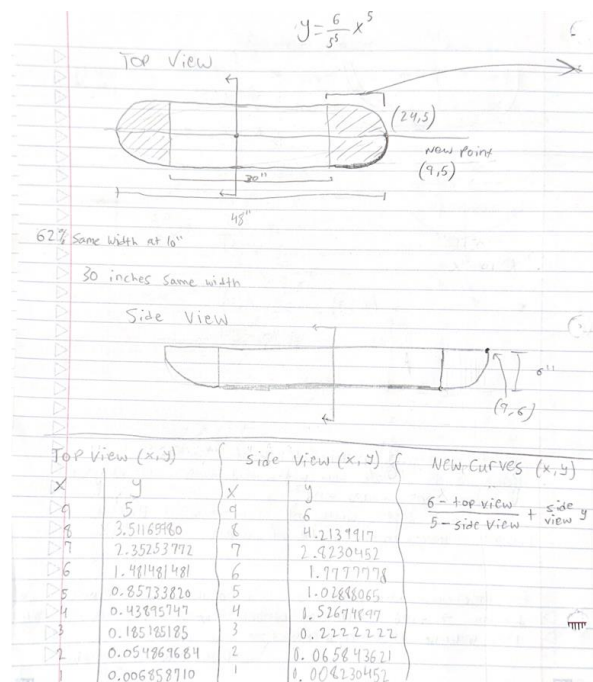 y = 6/5⁵ x⁵
TOP View
(24,5)
New Point
(9,5)
30"
48"
62% Same width at 10"
30 inches same width
Side View
6"
(9,6)
Top view (x,y) side view (x,y) New curves (x,y)
x y x y
6 - top view / 5 - side view + side view y
9 5 9 6
8 3.51169980 8 4.2139917
7 2.35253772 7 2.8230452
6 1.481481481 6 1.7777778
5 0.85733820 5 1.02880065
4 0.43895747 4 0.52674897
3 0.185185185 3 0.2222222
2 0.054869684 2 0.065843621
1 0.006858710 1 0.008230452